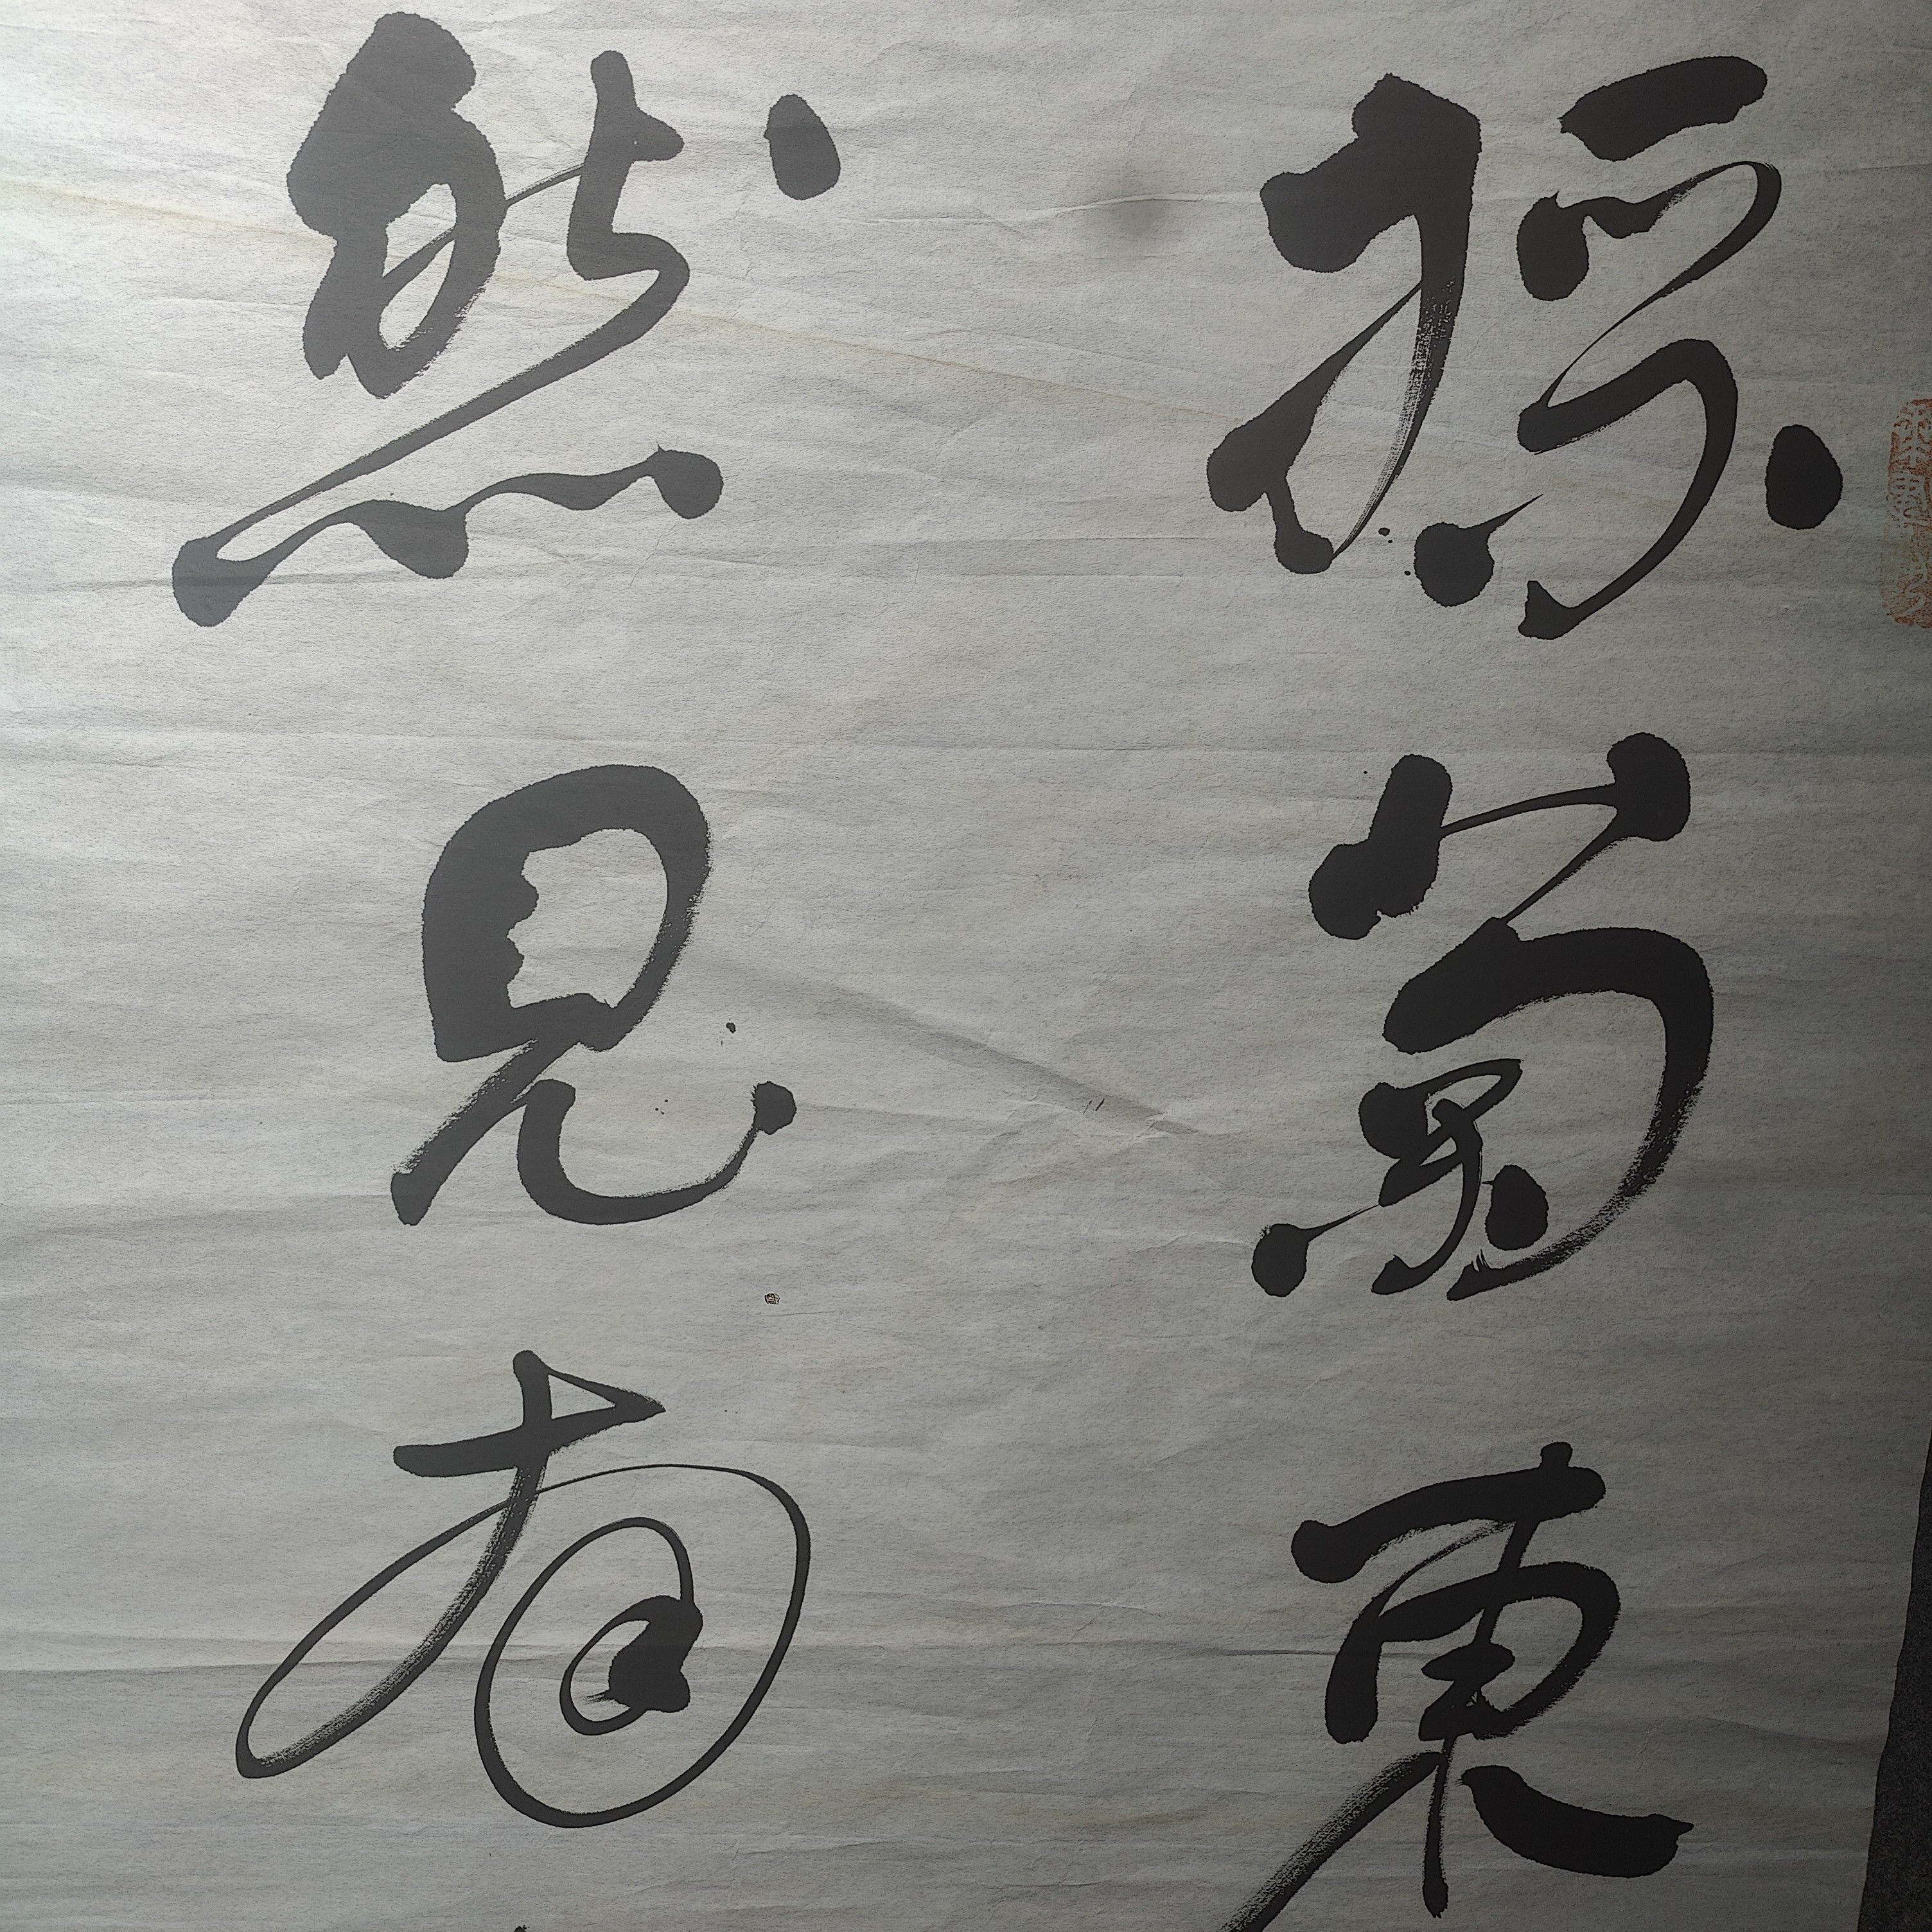 採菊東
然見南